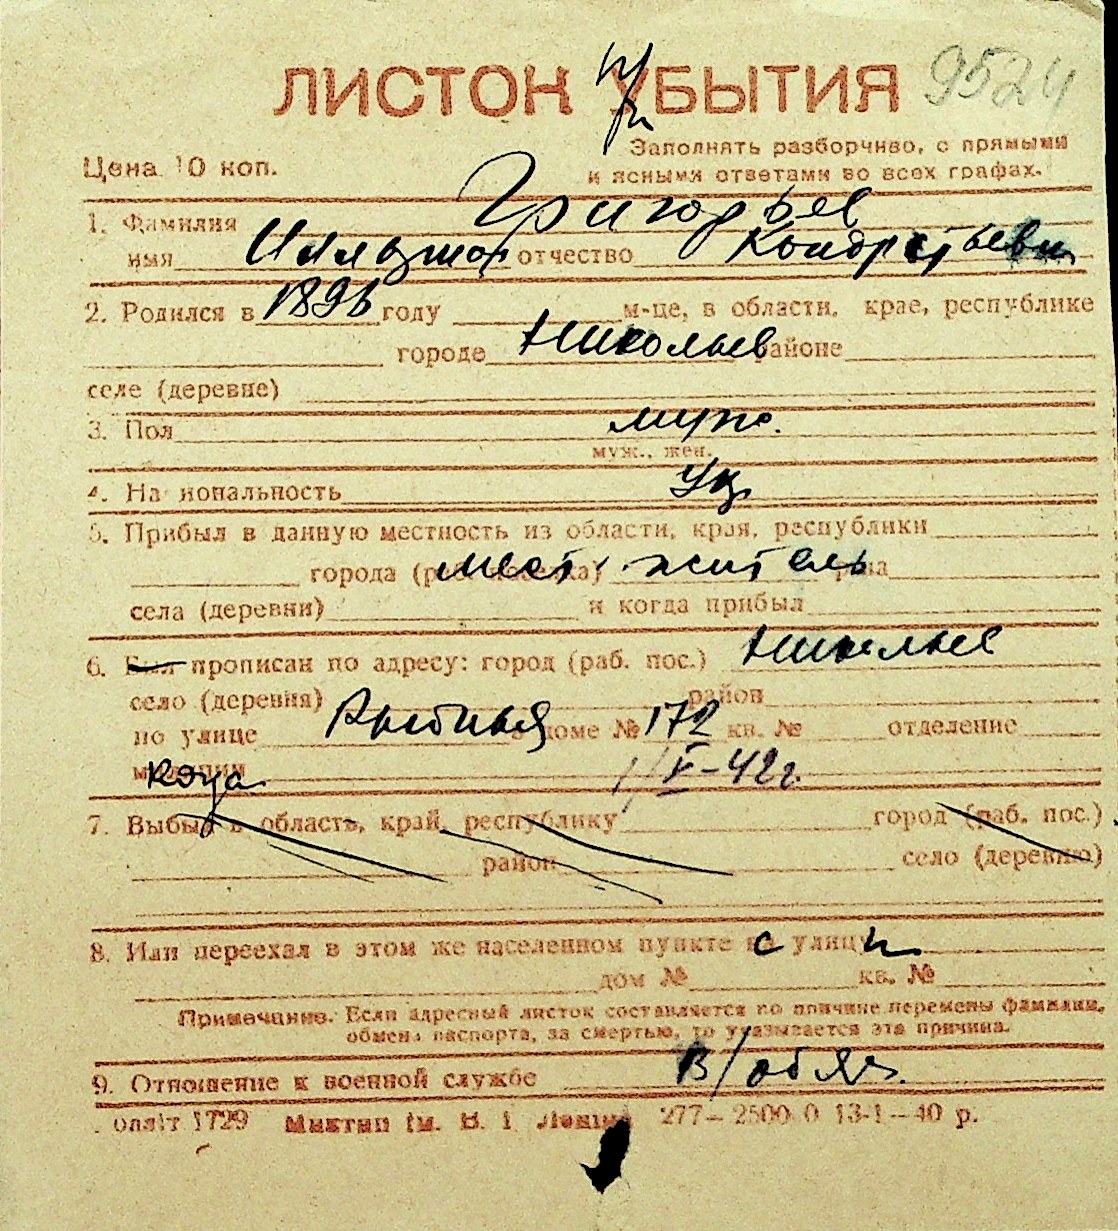 ЛИСТОК УБЫТИЯ 9524
Цена 10 коп.
Заполнять разборчиво, с прямыми
и ясными ответами во всех графах.
1. Фамилия Григорьев
имя отчество Кондратьевич
2. Родился в 1896 году м-це, в области, крае, республике
городе Николаев районе
селе (деревне)
3. Пол муж.
муж., жен.
4. Национальность Ук.
5. Прибыл в данную местность из области, края, республики
города (раб. поселка) мест. житель
села (деревни) и когда прибыл
6. Был прописан по адресу: город (раб. пос.) Николаев
село (деревня) район
по улице Рыбная в доме № 172 кв. № отделение
милиции 1/V-42 г.
7. Выбыл в область, край, республику город (раб. пос.)
район село (деревню)
8. Или переехал в этом же населенном пункте на улицу
дом № кв. №
Примечание. Если адресный листок составляется по причине перемены фамилии,
обмена паспорта, за смертью, то указывается эта причина.
9. Отношение к военной службе В/обяз.
1729 277–2500 0 13-1–40 р.